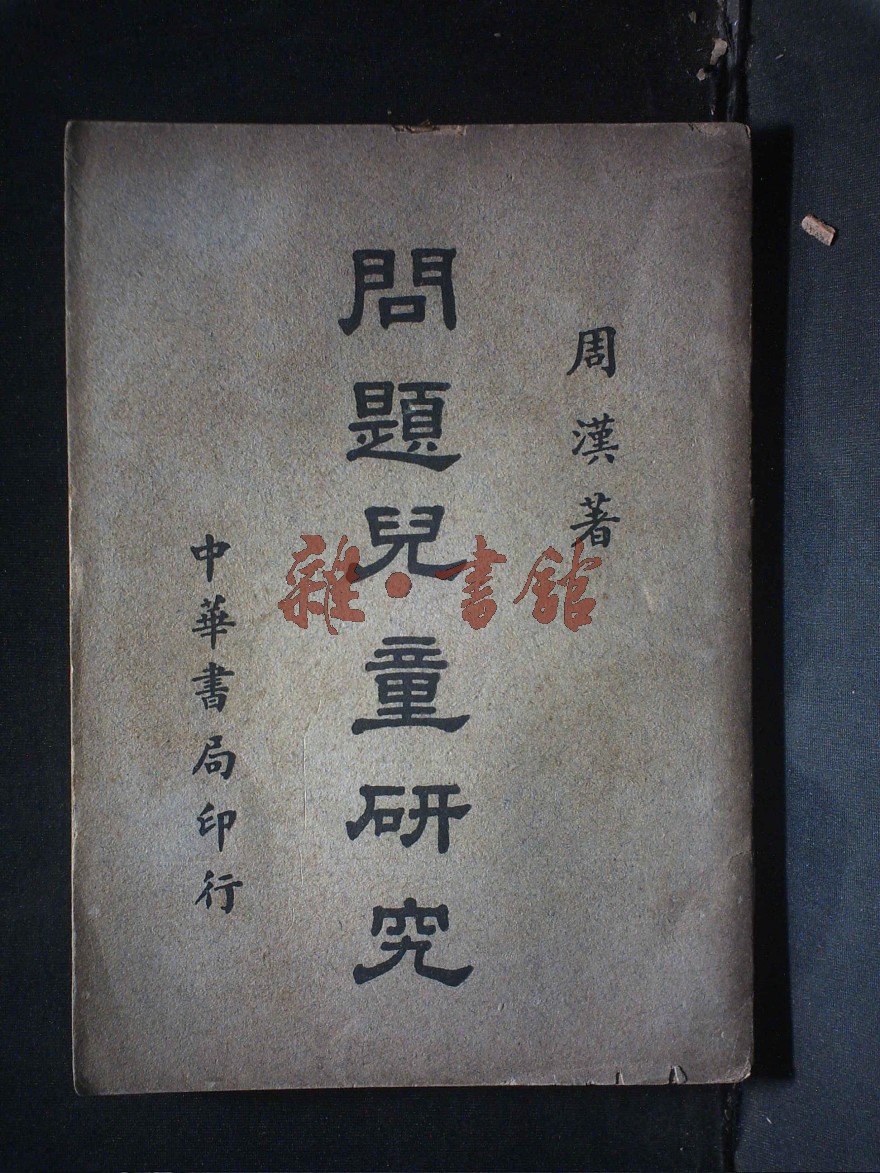 周漢著
問題兒童研究
中華書局印行
雜·書館